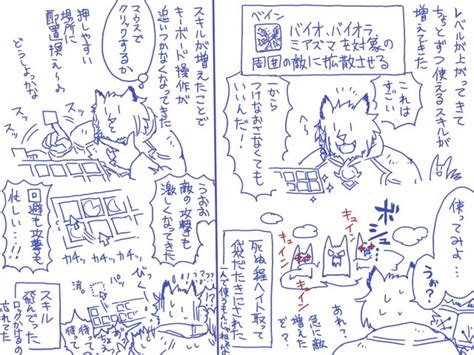 レベルが上がってきて
ちょとずつ使えるスキルが
増えてきた
ベイン
バイオ、バイオラ
ミアズマを対象の
周囲の敵に拡散させる
これは
すごい
から
つけなおさなくても
いいんだ!
使ってみよ…
うお?
ボシュ
キュイン
キュイン
キュイン
あれ?
急に敵
まで
死ぬ程ヘイト取って
袋だたきにされた
スキルが増えたことで
キーボード操作が
追いつかなくなってきた
マウスで
クリックするか
押しやすい
場所に
配置換え〜の
どうしよっかな
うおお
敵の攻撃も
激しくなってきた
回避も攻撃も
忙しい…!
カチッ、カチッ、カチッ
スキル
飛んでった
ロックかけるの
忘れてた